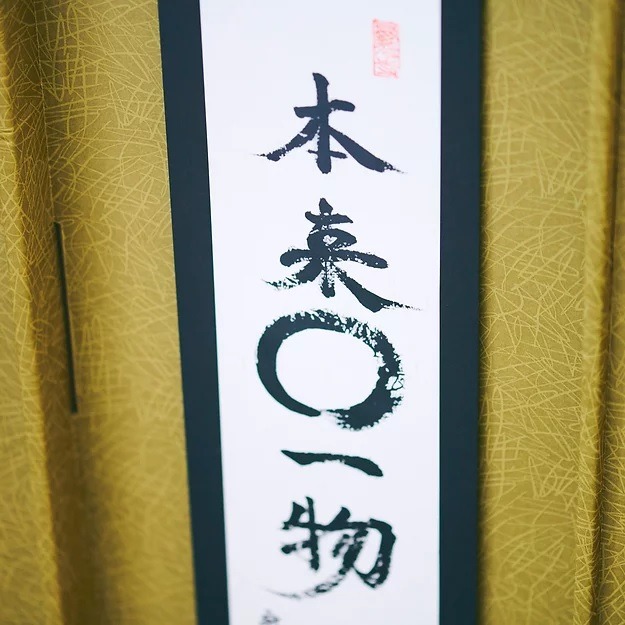 本来〇一物